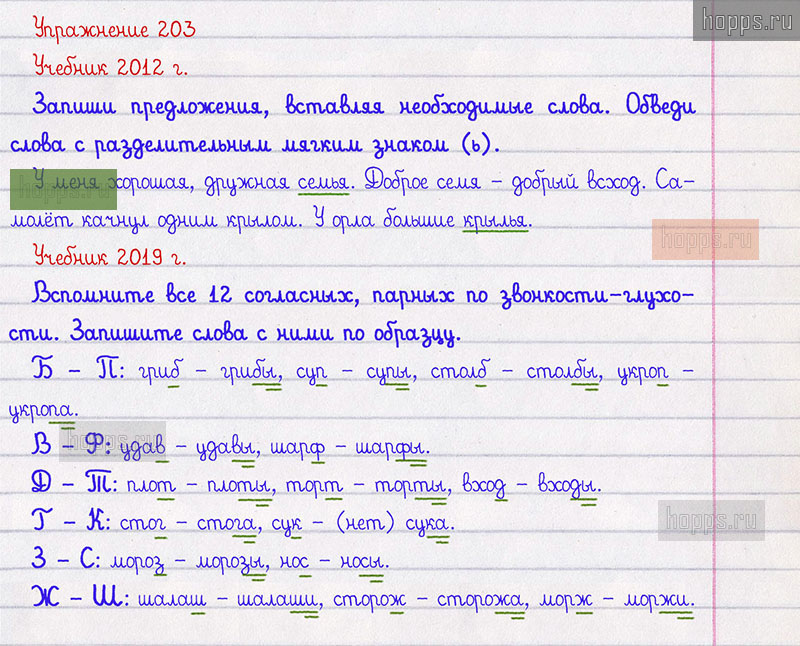 hopps.ru
Упражнение 203
Учебник 2012 г.
Запиши предложения, вставляя необходимые слова. Обведи
слова с разделительным мягким знаком (ь).
У меня хорошая, дружная семья. Доброе семя - добрый всход. Са-
hopps.ru
молёт качнул одним крылом. У орла большие крылья.
hopps.ru
Учебник 2019 г.
Вспомните все 12 согласных, парных по звонкости-глухо-
сти. Запишите слова с ними по образцу.
Б - П: гриб - грибы, суп - супы, столб - столбы, укроп -
укропа.
hopps.ru
В - Ф: удав - удавы, шарф - шарфы.
Д - Т: плот - плоты, торт - торты, вход - входы.
Г - К: стог - стога, сук - (нет) сука.
hopps.ru
З - С: мороз - морозы, нос - носы.
Ж - Ш: шалаш - шалаши, сторож - сторожа, морж - моржи.